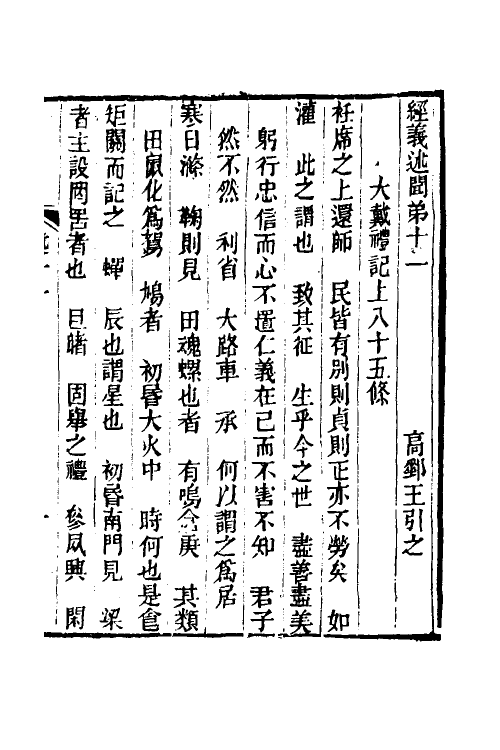 經義述聞弟十一
高郵王引之
大戴禮記上八十五條
衽席之上還師　民皆有別則貞則正亦不勞矣　如
灌　此之謂也　致其征　生乎今之世　盡善盡美
躬行忠信而心不置仁義在己而不害不知　君子
然不然　利省　大路車　承　何以謂之爲居
寒日滌　鞠則見　田魂螺也者　有鳴倉庚　其類
田鼠化爲鴽　鳩者　初昏大火中　時何也是食
矩關而記之　蟬　辰也謂星也　初昏南門見　梁
者主設罔罟者也　且睹　固舉之禮　參夙興　閑